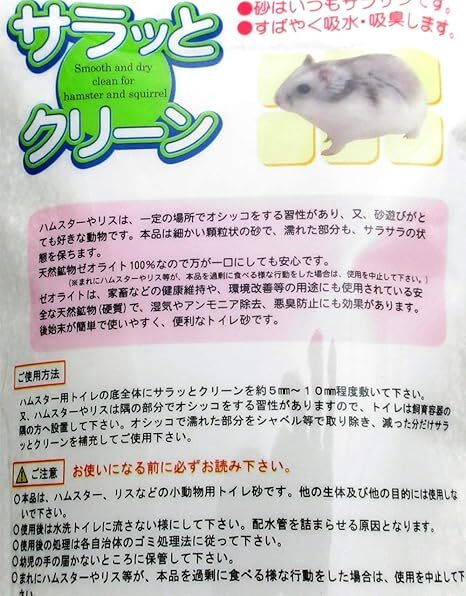 ●砂はいつもサラサラです。
●すばやく吸水・吸臭します。
サラッと
Smooth and dry
clean for
hamster and squirrel
クリーン
ハムスターやリスは、一定の場所でオシッコをする習性があり、又、砂遊びがと
ても好きな動物です。本品は細かい顆粒状の砂で、濡れた部分も、サラサラの状
態を保ちます。
天然鉱物ゼオライト100%なので万が一口にしても安心です。
(※まれにハムスターやリス等が、本品を過剰に食べる様な行動をした場合は、使用を中止して下さい。)
ゼオライトは、家畜などの健康維持や、環境改善等の用途にも使用されている安
全な天然鉱物(硬質)で、湿気やアンモニア除去、悪臭防止にも効果があります。
後始末が簡単で使いやすく、便利なトイレ砂です。
ご使用方法
ハムスター用トイレの底全体にサラッとクリーンを約5mm〜10mm程度敷いて下さい。
又、ハムスターやリスは隅の部分でオシッコをする習性がありますので、トイレは飼育容器の
隅の方へ設置して下さい。オシッコで濡れた部分をシャベル等で取り除き、減った分だけサラ
ッとクリーンを補充してご使用下さい。
ご注意 お使いになる前に必ずお読み下さい。
○本品は、ハムスター、リスなどの小動物用トイレ砂です。他の生体及び他の目的には使用しな
いで下さい。
○使用後は水洗トイレに流さない様にして下さい。配水管を詰まらせる原因となります。
○使用後の処理は各自治体のゴミ処理法に従って下さい。
○幼児の手の届かないところに保管して下さい。
○まれにハムスターやリス等が、本品を過剰に食べる様な行動をした場合は、使用を中止して下